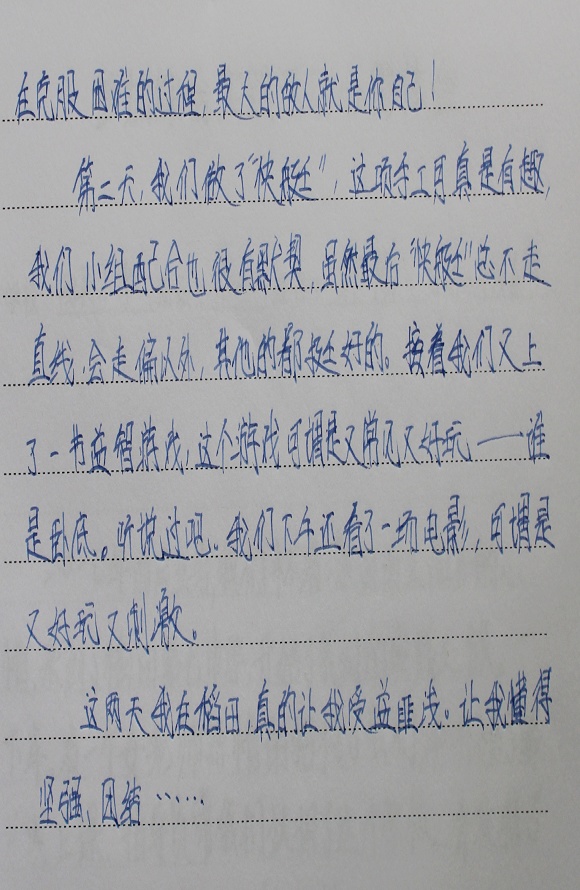 在克服困难的过程,最大的敌人就是你自己!
第二天,我们做了“快艇”,这项手工可真是有趣,
我们小组配合也很有默契,虽然最后“快艇”总不走
直线,会走偏以外,其他的都挺好的。接着我们又上
了一节益智游戏,这个游戏可谓是又常见又好玩——谁
是卧底。听说过吧。我们下午还看了一场电影,可谓是
又好玩又刺激。
这两天我在稻田,真的让我受益匪浅。让我懂得
坚强、团结……